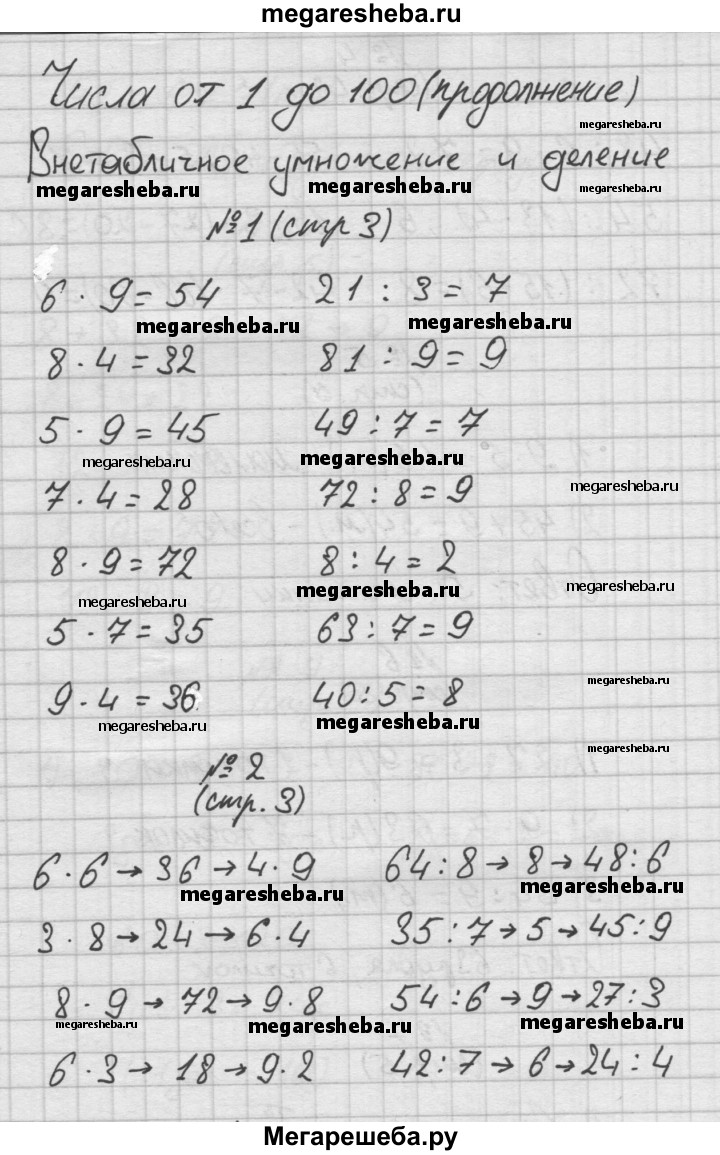 megaresheba.ru
Числа от 1 до 100 (продолжение)
megaresheba.ru
Внетабличное умножение и деление
megaresheba.ru megaresheba.ru megaresheba.ru
№1 (стр 3)
6 · 9 = 54 21 : 3 = 7
megaresheba.ru megaresheba.ru
8 · 4 = 32 81 : 9 = 9
5 · 9 = 45 49 : 7 = 7
megaresheba.ru megaresheba.ru
7 · 4 = 28 72 : 8 = 9 megaresheba.ru
8 · 9 = 72 8 : 4 = 2
megaresheba.ru megaresheba.ru megaresheba.ru
5 · 7 = 35 63 : 7 = 9
megaresheba.ru
9 · 4 = 36 40 : 5 = 8
megaresheba.ru megaresheba.ru
megaresheba.ru
№ 2
(стр. 3)
6 · 6 → 36 → 4 · 9 64 : 8 → 8 → 48 : 6
megaresheba.ru megaresheba.ru
3 · 8 → 24 → 6 · 4 35 : 7 → 5 → 45 : 9
8 · 9 → 72 → 9 · 8 54 : 6 → 9 → 27 : 3
megaresheba.ru megaresheba.ru megaresheba.ru
6 · 3 → 18 → 9 · 2 42 : 7 → 6 → 24 : 4
Мегарешеба.ру